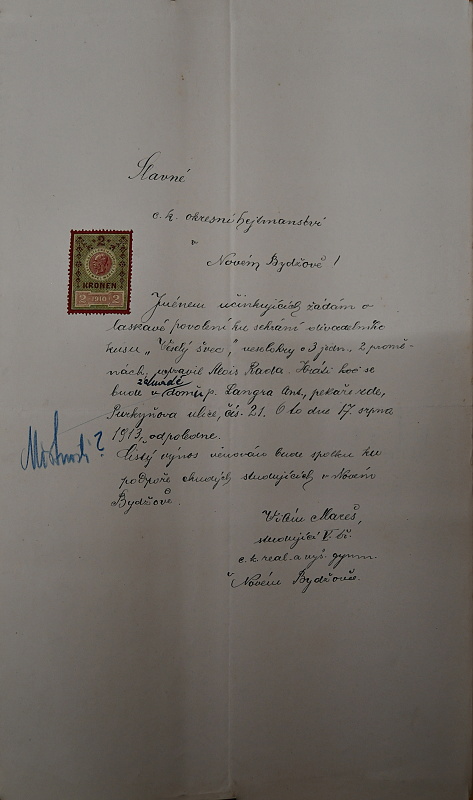 Slavné
c. k. okresní hejtmanství
v
Novém Bydžově!
2
KRONEN
2 1910 2
Jménem účinkujících žádám o
laskavé povolení ku sehrání divadelního
kusu „Věštý švec“, veselohry o 3 jedn. 2 promě-
nách, upravil Alois Rada. Hráti hod se
zahradě
bude v domě p. Langra Ant., pekaře zde,
Purkyňova ulice, čís. 21. O to dne 17. srpna
1913, odpoledne.
Čistý výnos věnován bude spolku ku
podpoře chudých studujících v Novém
Bydžově.
Vilém Mareš,
studující V. tř.
c. k. real. a vyš. gymn.
v Novém Bydžově.